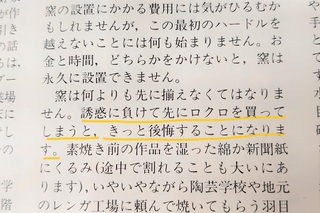 窯の設置にかかる費用には気がひるむか
もしれませんが、この最初のハードルを
越えないことには何も始まりません。お
金と時間、どちらかをけないと、窯は
永久に設置できません。
窯は何よりも先に揃えなくてはなりま
せん。誘惑に負けて先にロクロを買って
しまうと、きっと後悔することになりま
す。素焼き前の作品を湿った綿か新聞紙
にくるみ(途中で割れることも大いにあ
ります)、いやいやながら陶芸学校や地元
のレンガ工場に頼んで焼いてもらう羽目